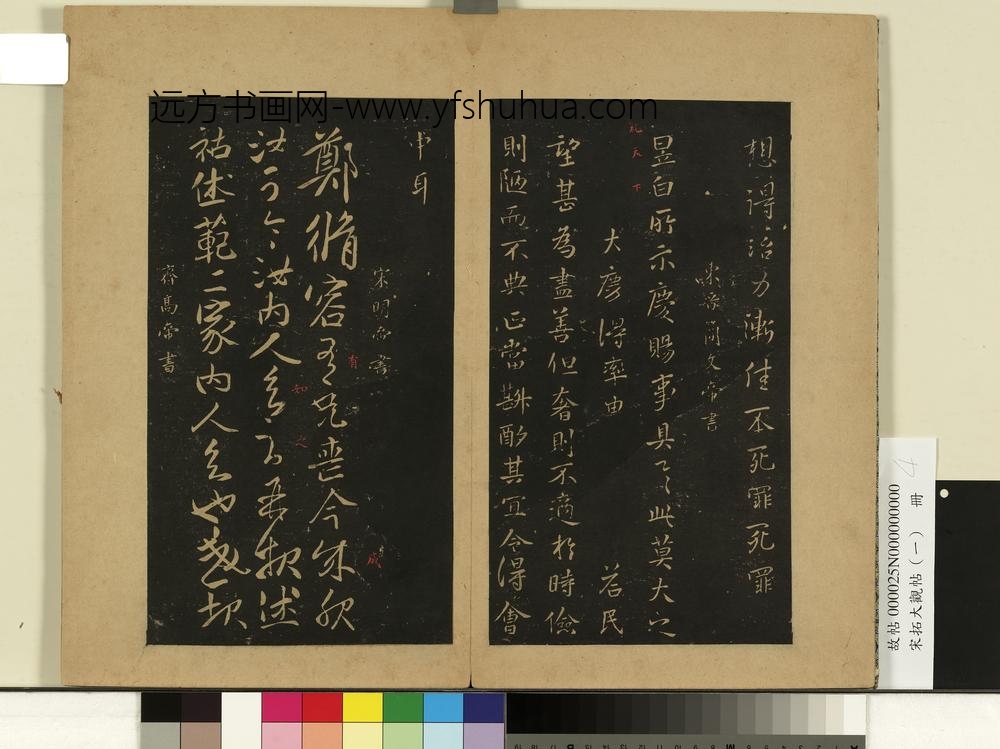 远方书画网-www.yfshuhua.com
想得治力漸佳不死罪死罪
梁簡文帝書
昱白所示慶賜事具了此莫大之
礼天下
大慶得率由 若民
望甚為盡善但奢則不適於時儉
則陋而不典正當斟酌其宜令得會
中耳
宋明帝書
鄭脩容 喪今成服
有
成
汝可 汝内人 述
如
之
祜 範二家内人 也
齊高帝書
故帖 000025N000000000
宋拓大觀帖(一) 冊
4